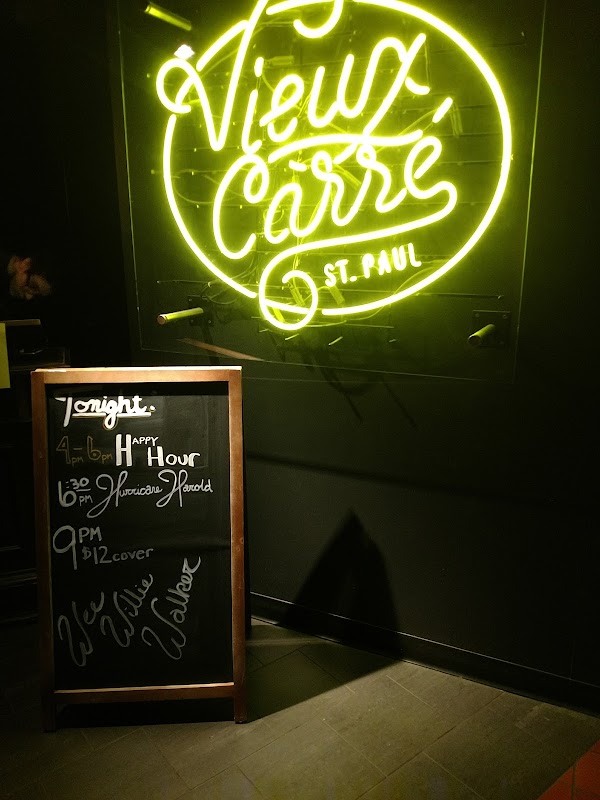 Vieux
Carré
ST. PAUL
Tonight.
4pm-6pm HAPPY HOUR
6:30 PM Hurricane Harold
9PM
$12 cover
Wee
Willie
Walker